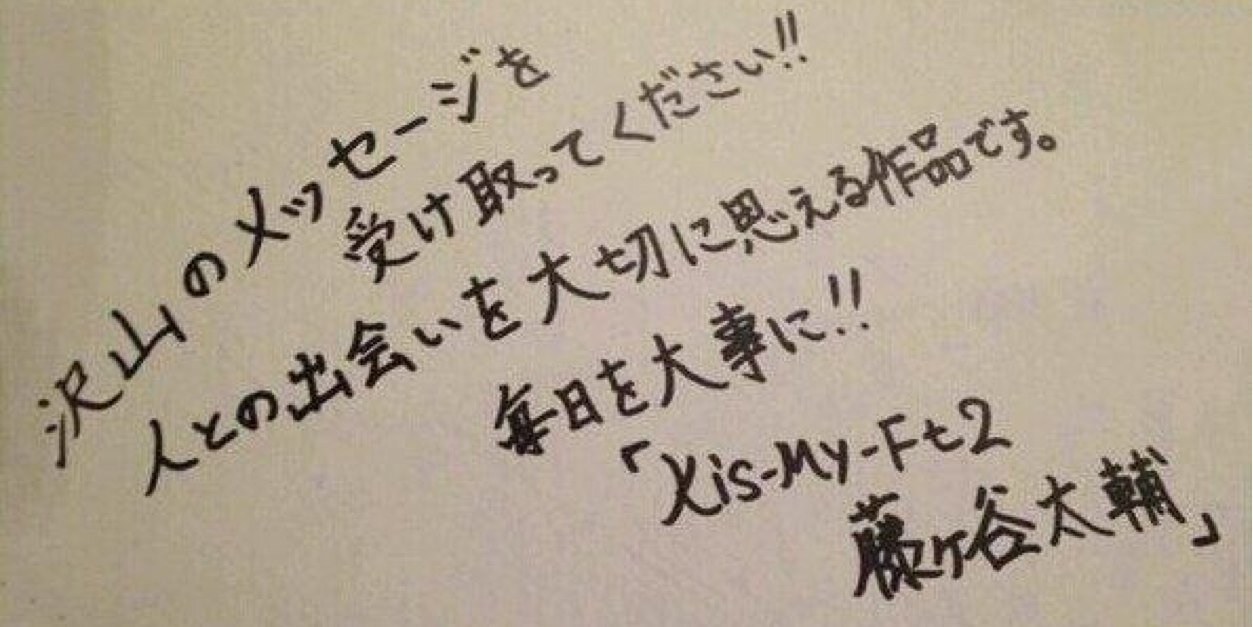 沢山のメッセージを
受け取ってください!!
人との出会いを大切に思える作品です。
毎日を大事に!!
「Kis-My-Ft2
藤ヶ谷太輔」